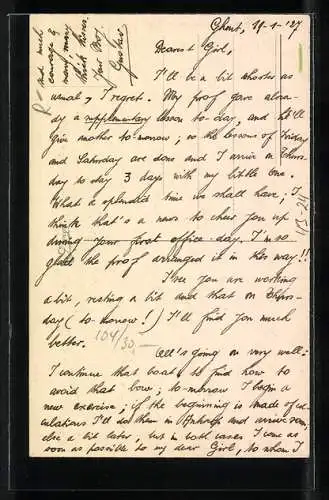 Ghent, 19-1-'27
Dearest Girl,
I'll be a bit shorter as
usual, I regret. My prof gave alrea-
dy a supplementary lesson to day, and he'll
give another to-morrow; so the lessons of Friday
and Saturday are done and I arrive on Thurs-
day to stay 3 days with my little one.
What a splendid time we shall have; I
think that's a news to cheer you up
during your first office-day. I'm so
glad the prof arranged it in this way!!
I see you are working
a bit, resting a bit and that on Thurs-
day (to-morrow!) I'll find you much
better.
All's going on very well:
I continue that book to find how to
avoid that bow; to-morrow I begin a
new exercise; if the beginning is made of cal-
culations I'll do them in and arrive soon;
else a bit later, but in both cases I come as
soon as possible to my dear Girl, to whom I
and much
courage &
many, many
thick kisses.
Your Boy,
Gustav
104/30,-